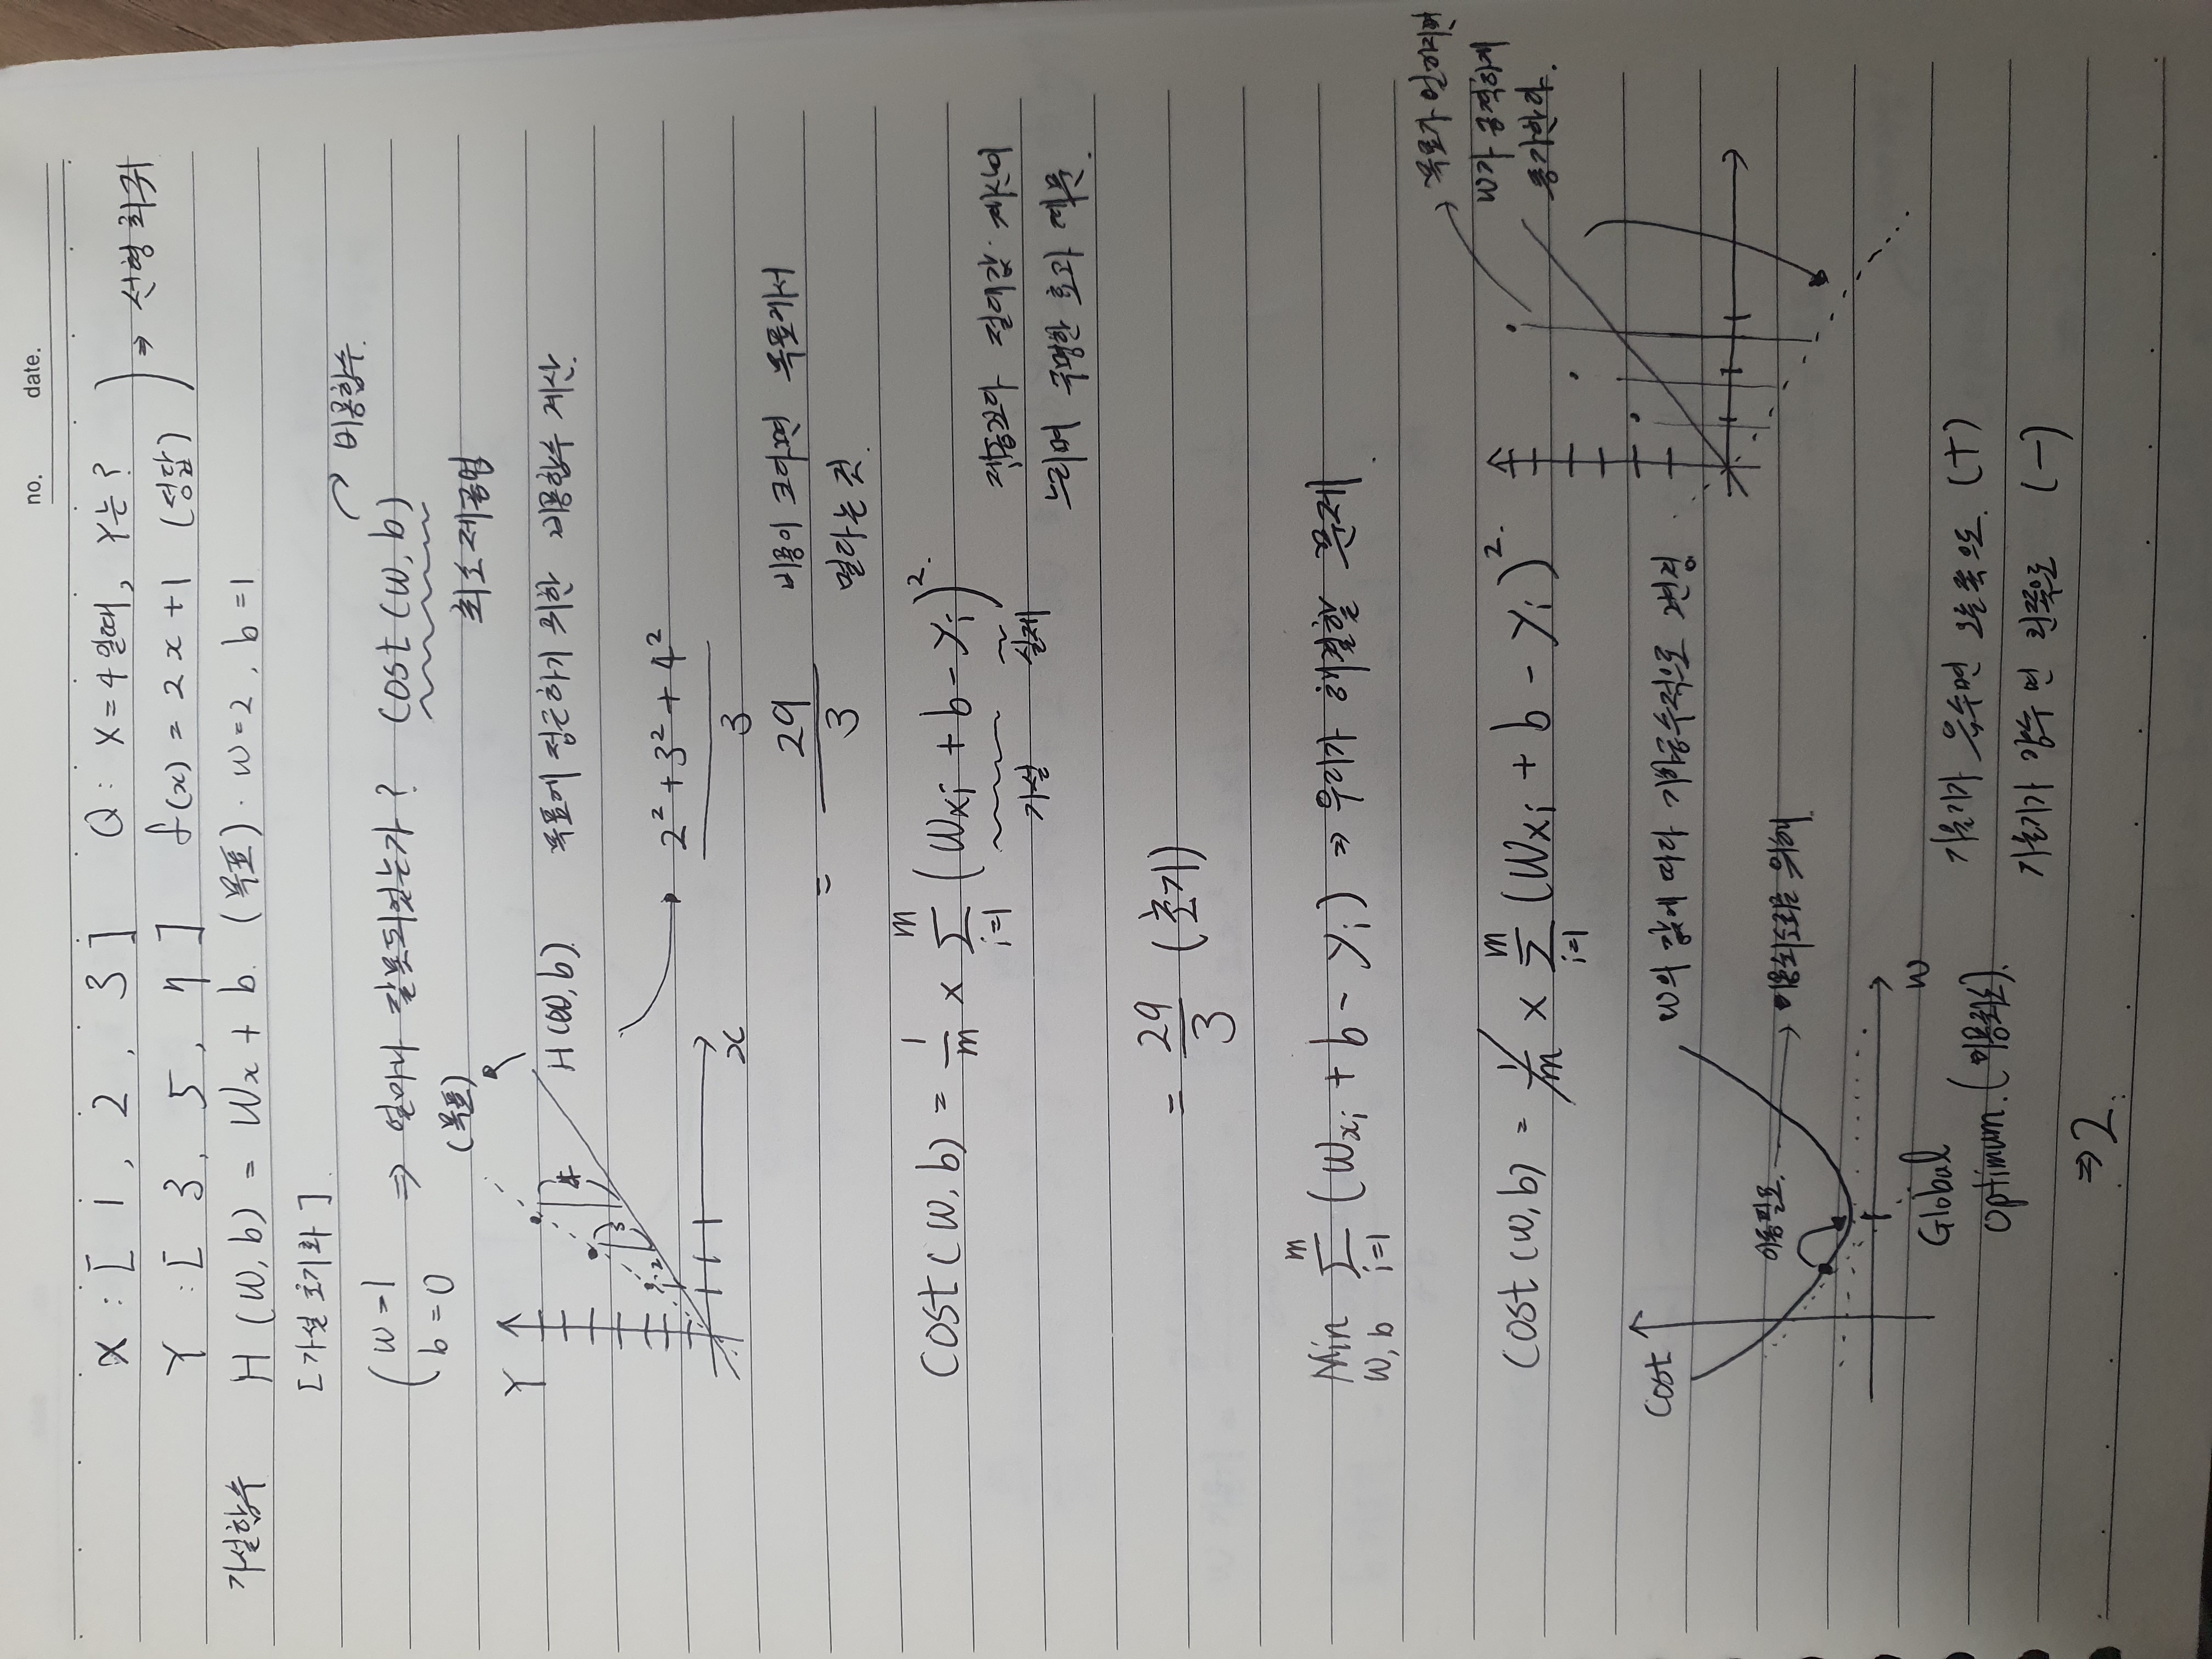 no. date.
X : [ 1 , 2 , 3 ] Q : X = 4 일때, Y는 ?
Y : [ 3 , 5 , 7 ] f(x) = 2x+1 (정답) ⇒ 선형 회귀
가설함수 H (W, b) = Wx + b. (목표) · w = 2 , b = 1
[ 가설 초기화 ].
w = 1
b = 0 ⇒ 얼마나 잘못되었는가 ? Cost (W, b) → 비용함수.
최소제곱법
(목표)
Y H (W, b). 목표에 접근하기 위한 비용함수 계산.
4
3
2
x
2² + 3² + 4² / 3
= 29 / 3 비용이 크다면 목표에서
멀다는 것.
Cost ( W, b ) = 1/m × m Σ i=1 ( Wxi + b - yi )².
가설 실제
제곱보다 절대값 계산이
느리며 극명한 효과 때문.
= 29 / 3 (초기)
Min W, b m Σ i=1 ( Wxi + b - yi ) ⇒ 우리가 해결할 문제.
목표가 멀어지면
w가 급격하게
증가한다.
Cost (W, b) = 1/m × m Σ i=1 ( Wxi + b - yi )².
Cost w의 값에 따라 기하급수적으로 변경
이동필요. → 비용최소화를 위해.
w
Global
optimum. (비용최소).
기울기가 음수면 오른쪽으로. (+)
기울기가 양수 면 왼쪽으로 (-)
⇒ 2.